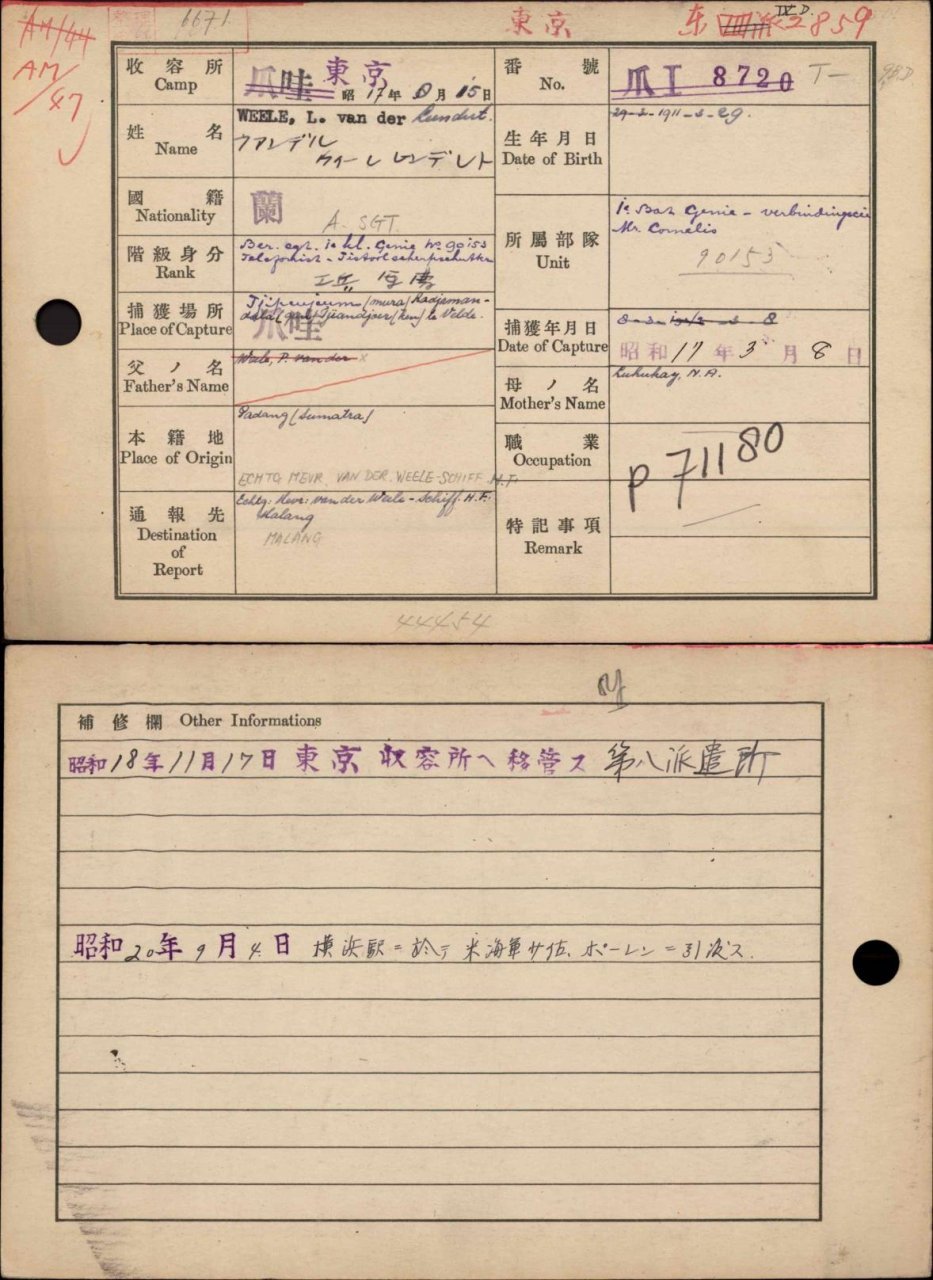 AM/44
AM/47
6671
東京
IV D.
2859
收容所
Camp
爪哇 東京
昭17年8月15日
番號
No.
爪I 8720
T-
姓名
Name
WEELE, L. van der Lendert.
ファンデル
ウィーレ レンデルト
生年月日
Date of Birth
29-3-1911
國籍
Nationality
蘭
A. SGT.
所屬部隊
Unit
1e Bat Genie - verbindingscie
Mr. Cornelis
90153
階級身分
Rank
Ber. sgt. 1e kl. Genie No 90153
Telefonist - Pistoolscherpschutter
捕獲場所
Place of Capture
爪哇
捕獲年月日
Date of Capture
昭和17年3月8日
父ノ名
Father's Name
Weele, P. van der x
母ノ名
Mother's Name
Luhukay, N.A.
本籍地
Place of Origin
Padang (Sumatra)
ECHTG MEVR. VAN DER WEELE-SCHIFF. H.F.
職業
Occupation
P 71180
通報先
Destination
of
Report
Echtg: Mevr: van der Weele - Schiff. H.F.
Malang
MALANG
特記事項
Remark
44454
補修欄 Other Informations
昭和18年11月17日 東京 収容所へ移管ス 第八派遣所
昭和20年9月4日 横浜駅ニ於テ 米海軍少佐、ポーレンニ引渡ス